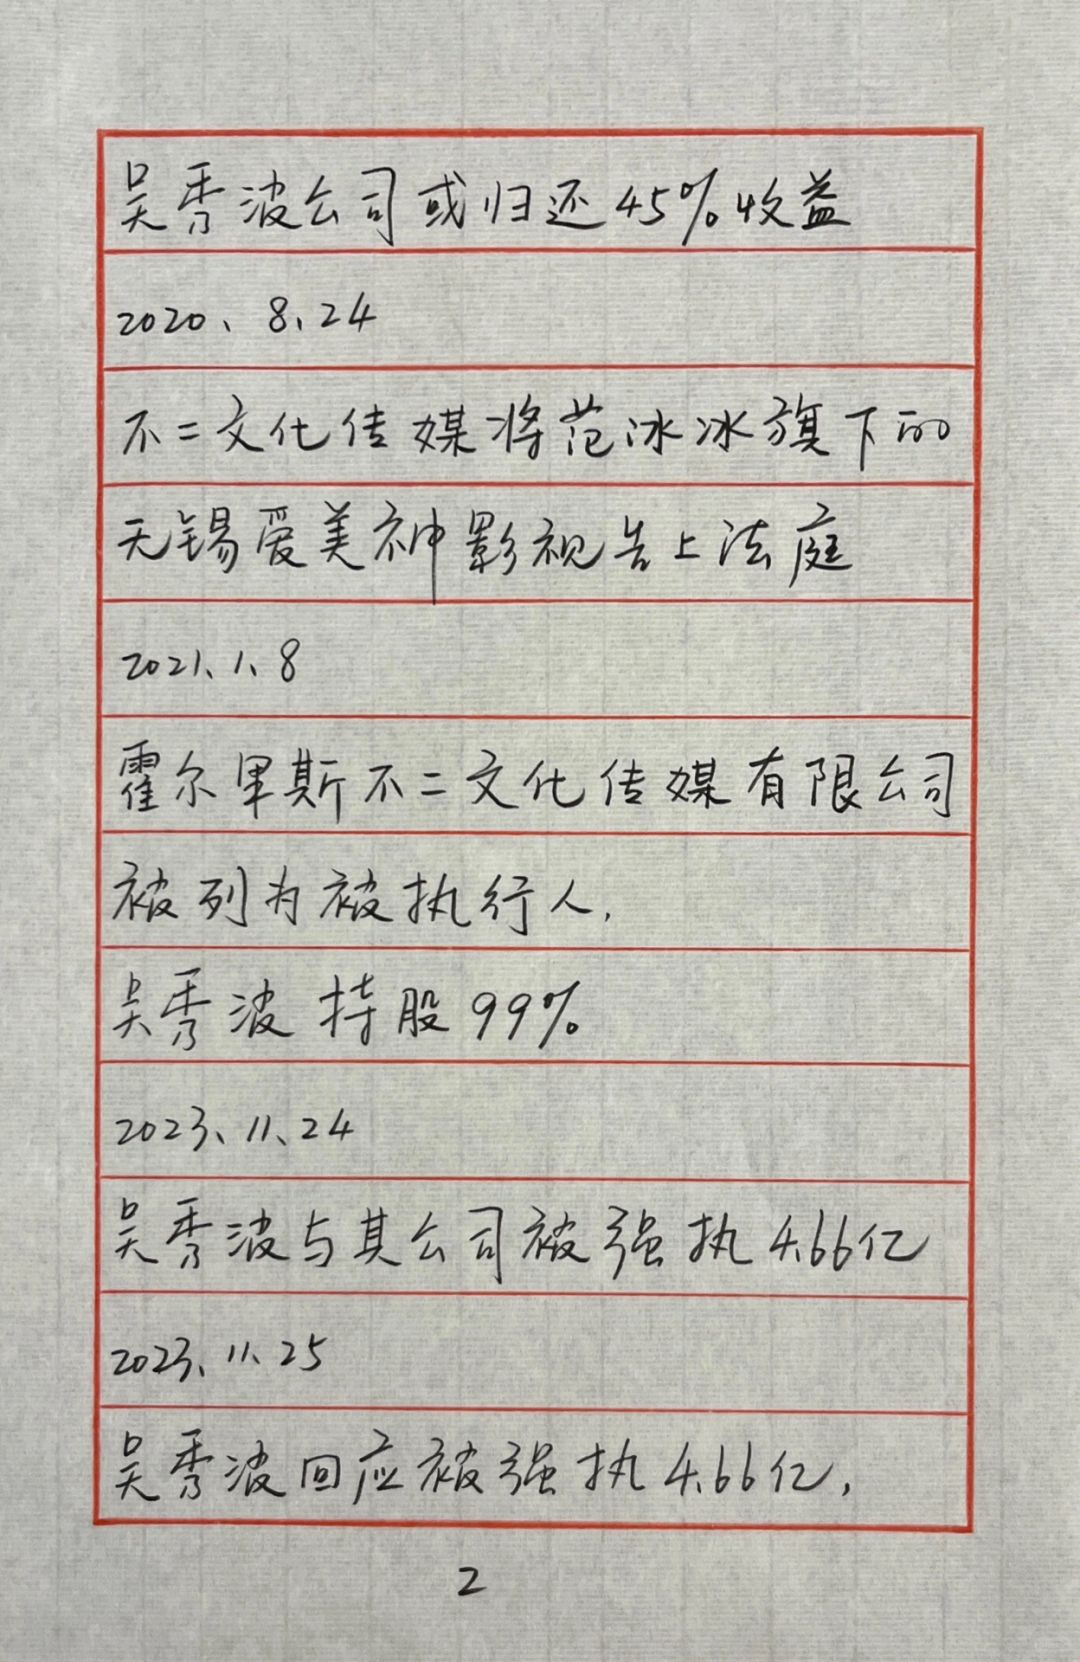 吴秀波公司或归还45%收益
2020、8、24
不二文化传媒将范冰冰旗下的
无锡爱美神影视告上法庭
2021、1、8
霍尔果斯不二文化传媒有限公司
被列为被执行人,
吴秀波持股99%
2023、11、24
吴秀波与其公司被强执4.66亿
2023、11、25
吴秀波回应被强执4.66亿,
2